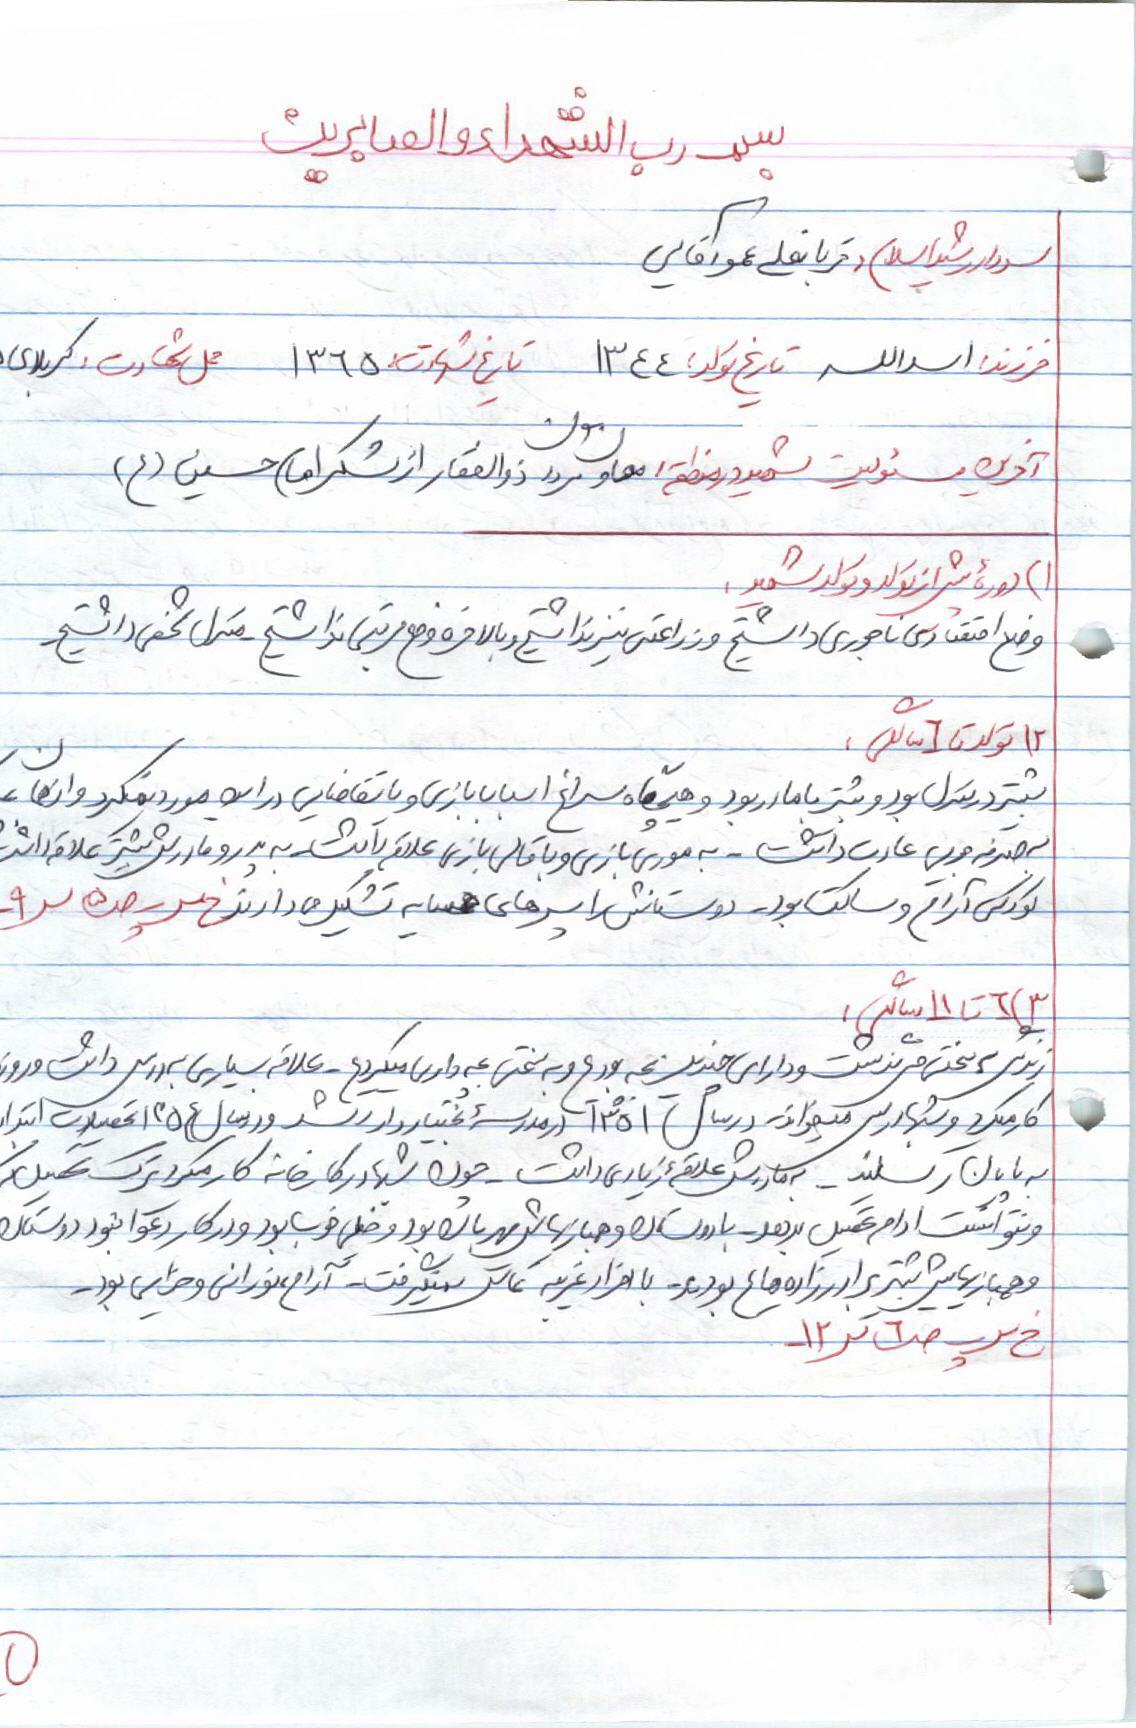 بسم رب الشهداء و الصابرین
سردار رشید اسلام: قربانعلی عموآقائی
فرزند: اسدالله تاریخ تولد: ۱۳۴۴ تاریخ شهادت: ۱۳۶۵ محل شهادت: کربلای
آخرین مسئولیت شهید در منطقه: معاون گردان ذوالفقار از لشکر امام حسین (ع)
۱) دورهٔ پیش از تولد و تولد شهید:
وضع اقتصادی ناجوری داشتیم و زراعتی نیز نداشتیم و بالاخره وضع مرتبی نداشتیم - منزل شخصی داشتیم -
۲) تولد تا ۶ سالگی:
بیشتر در منزل بود و بیشتر با مادر بود و هیچگاه سراغ اسباب بازی و یا تقاضایی در این مورد نمیکرد و از همان
به خوبی عادت داشت - به موری بازی و بقالی بازی علاقه داشت - به پدر و مادرش بیشتر علاقه داشت
کودکی آرام و ساکت بود - دوستانش را پسرهای همسایه تشکیل میدادند خ س پ ص ۵ س ۹-
۳) ۶ تا ۱۱ سالگی:
زندگی به سختی می‌گذشت و دارای چندین بچه بودم و به سختی بچه داری میکردم - علاقه بسیاری به درس داشت و روزها
کار میکرد و شبها درس میخواند - در سال ۱۳۵۱ در مدرسهٔ بختیار وارد شد و در سال ۱۳۵۶ تحصیلات ابتدایی
به پایان رسانید - به مدرسه علاقهٔ زیادی داشت - چون شبها در کارخانه کار میکرد ترک تحصیل
و نتوانست ادامه تحصیل بدهد - با دوستان و همبازیهایش مهربان بود و خیلی خوب بود و در کار دعوا نبود دوستان
و همبازیهایش بیشتر برادرزاده‌هایم بودند - با افراد غریبه تماس نمیگرفت - آرام، نورانی و حساس بود -
خ س پ ص ۶ س ۱۲-